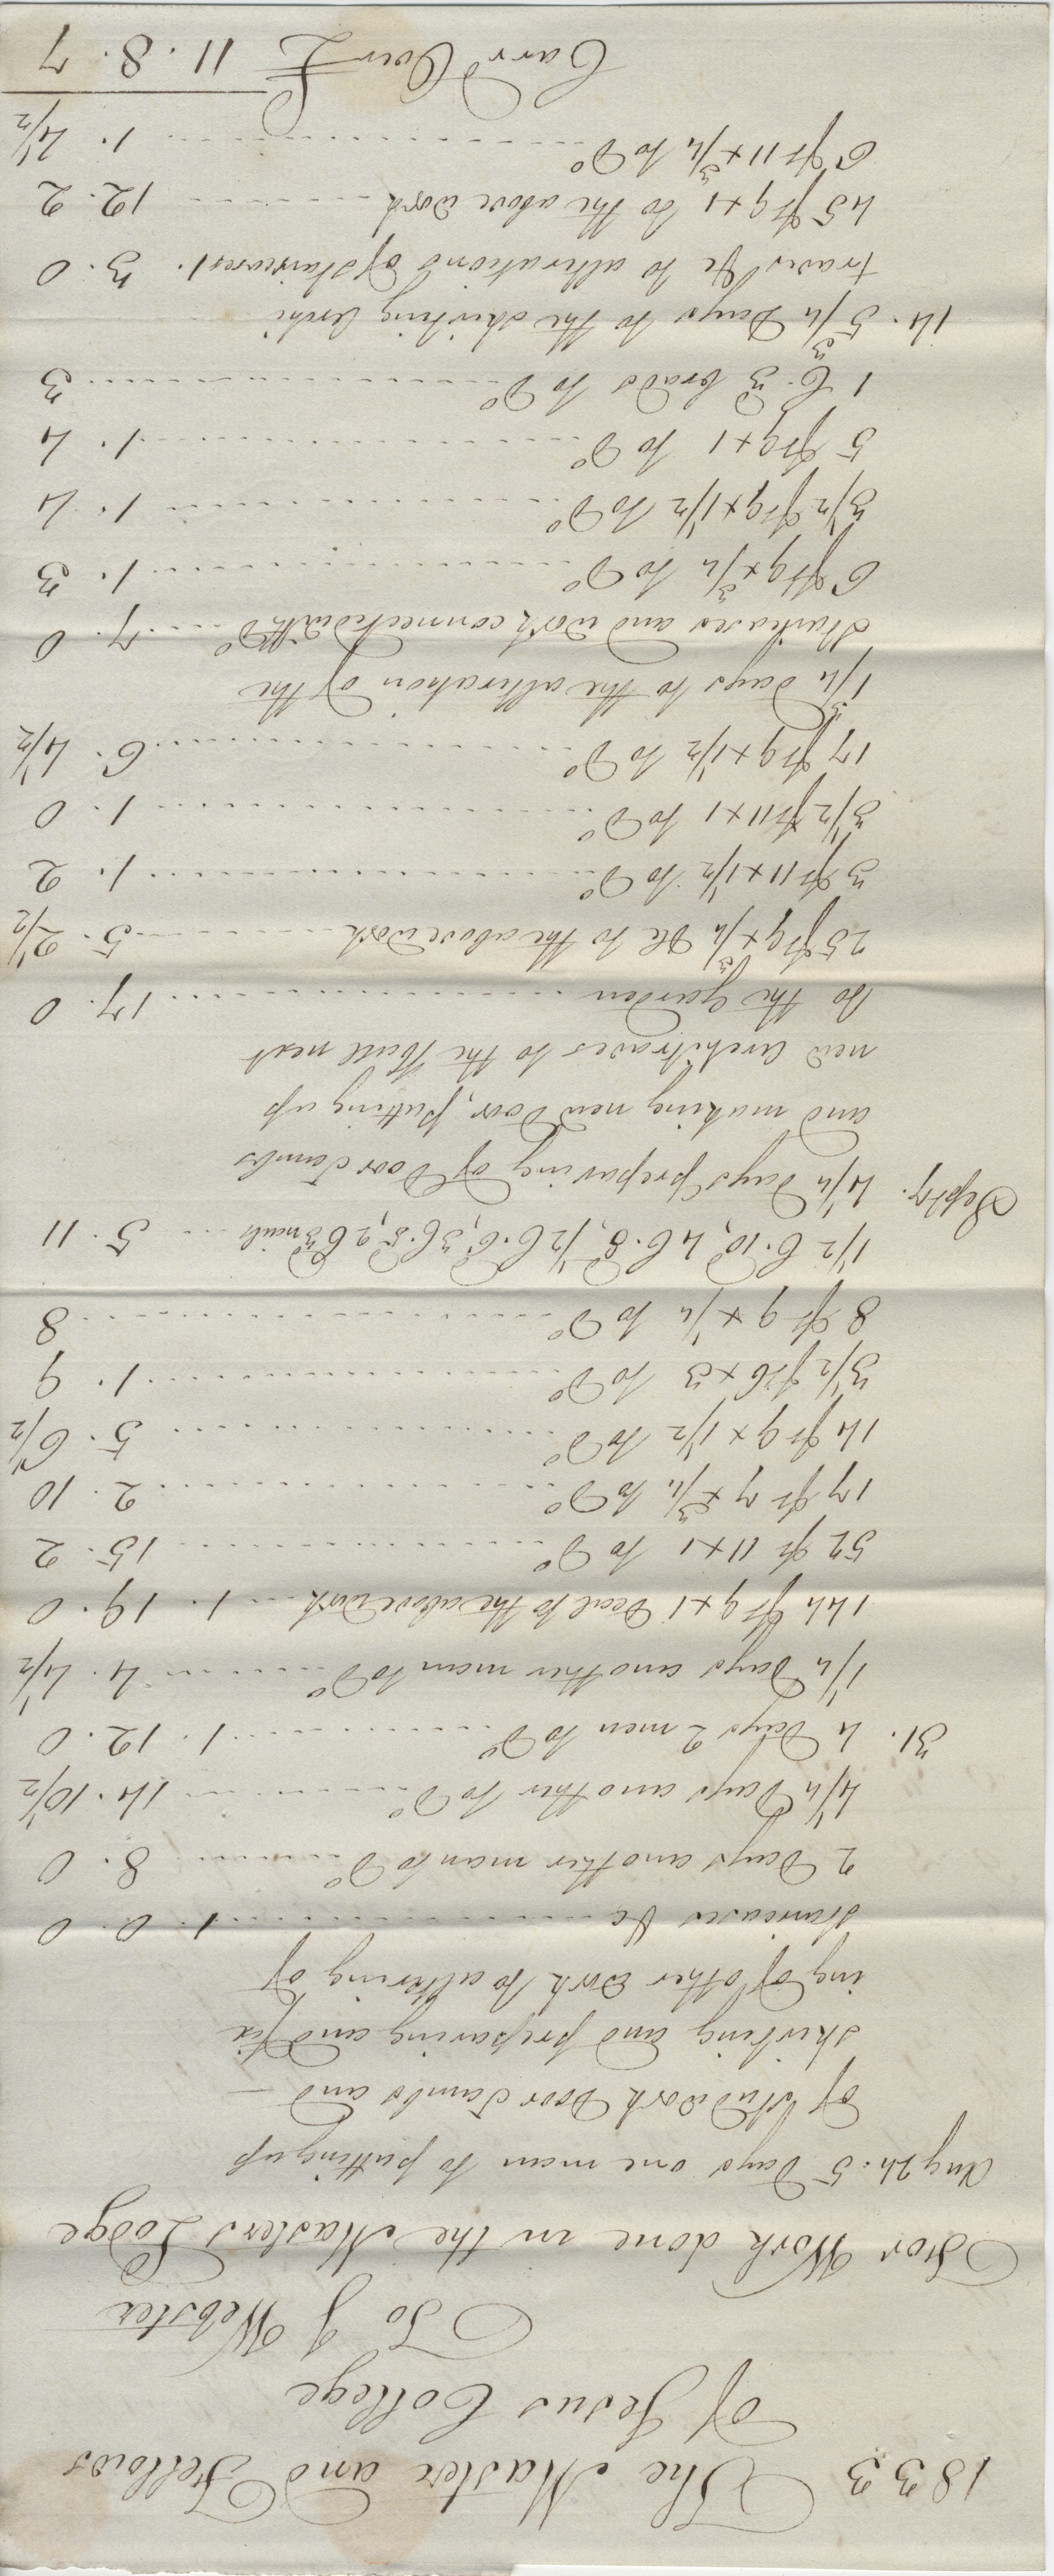 1833 The Master and Fellows
of Jesus College
To J Webster
For Work done in the Masters Lodge
Aug 24. 5 Days one man to putting up
of Stud work Door Jambs and —
skirting and preparing and fix
ing of other work to altering of
staircases &c 1. 0. 0
2 Days another man to Do 8. 0
4 1/4 Days another to Do 14. 10 1/2
31. 4 Days 2 men to Do 1. 12. 0
1 1/4 Days another man to Do 4. 4 1/2
144 ft 9 x 1 Deal to the above work 1. 19. 0
52 ft 11 x 1 to Do 15. 2
17 ft 7 x 3/4 to Do 2. 10
14 ft 9 x 1 1/2 to Do 5. 6 1/2
3 1/2 ft 6 x 3 to Do 1. 9
8 ft 9 x 1/4 to Do 8
1/2 C. 10d, 4 C. 8d, 1/2 C. 6d, 3 C. 5d, 2 C 3d nails 5. 11
Sept 7. 4 1/4 Days preparing of Door Jambs
and making new Door, putting up
new architraves to the Hall next
to the Garden 17. 0
25 ft 9 x 3/4 Dl to the above work 5. 2 1/2
3 ft 11 x 1 1/2 to Do 1. 2
3 1/2 ft 11 x 1 to Do 1. 0
17 ft 9 x 1 1/2 to Do 6. 4 1/2
1 3/4 Days to the alteration of the
Staircases and work connected with Do 7. 0
6 ft 9 x 3/4 to Do 1. 3
3 1/2 ft 9 x 1 1/2 to Do 1. 4
5 ft 9 x 1 to Do 1. 4
1 C. 3d brads to Do 3
14. 5 3/4 Days to the skirting Archi
traves &c to alterations of staircases 1. 3. 0
45 ft 9 x 1 to the above work 12. 2
6 ft 11 x 3/4 to Do 1. 4 1/2
Carrd Over £ 11. 8. 7